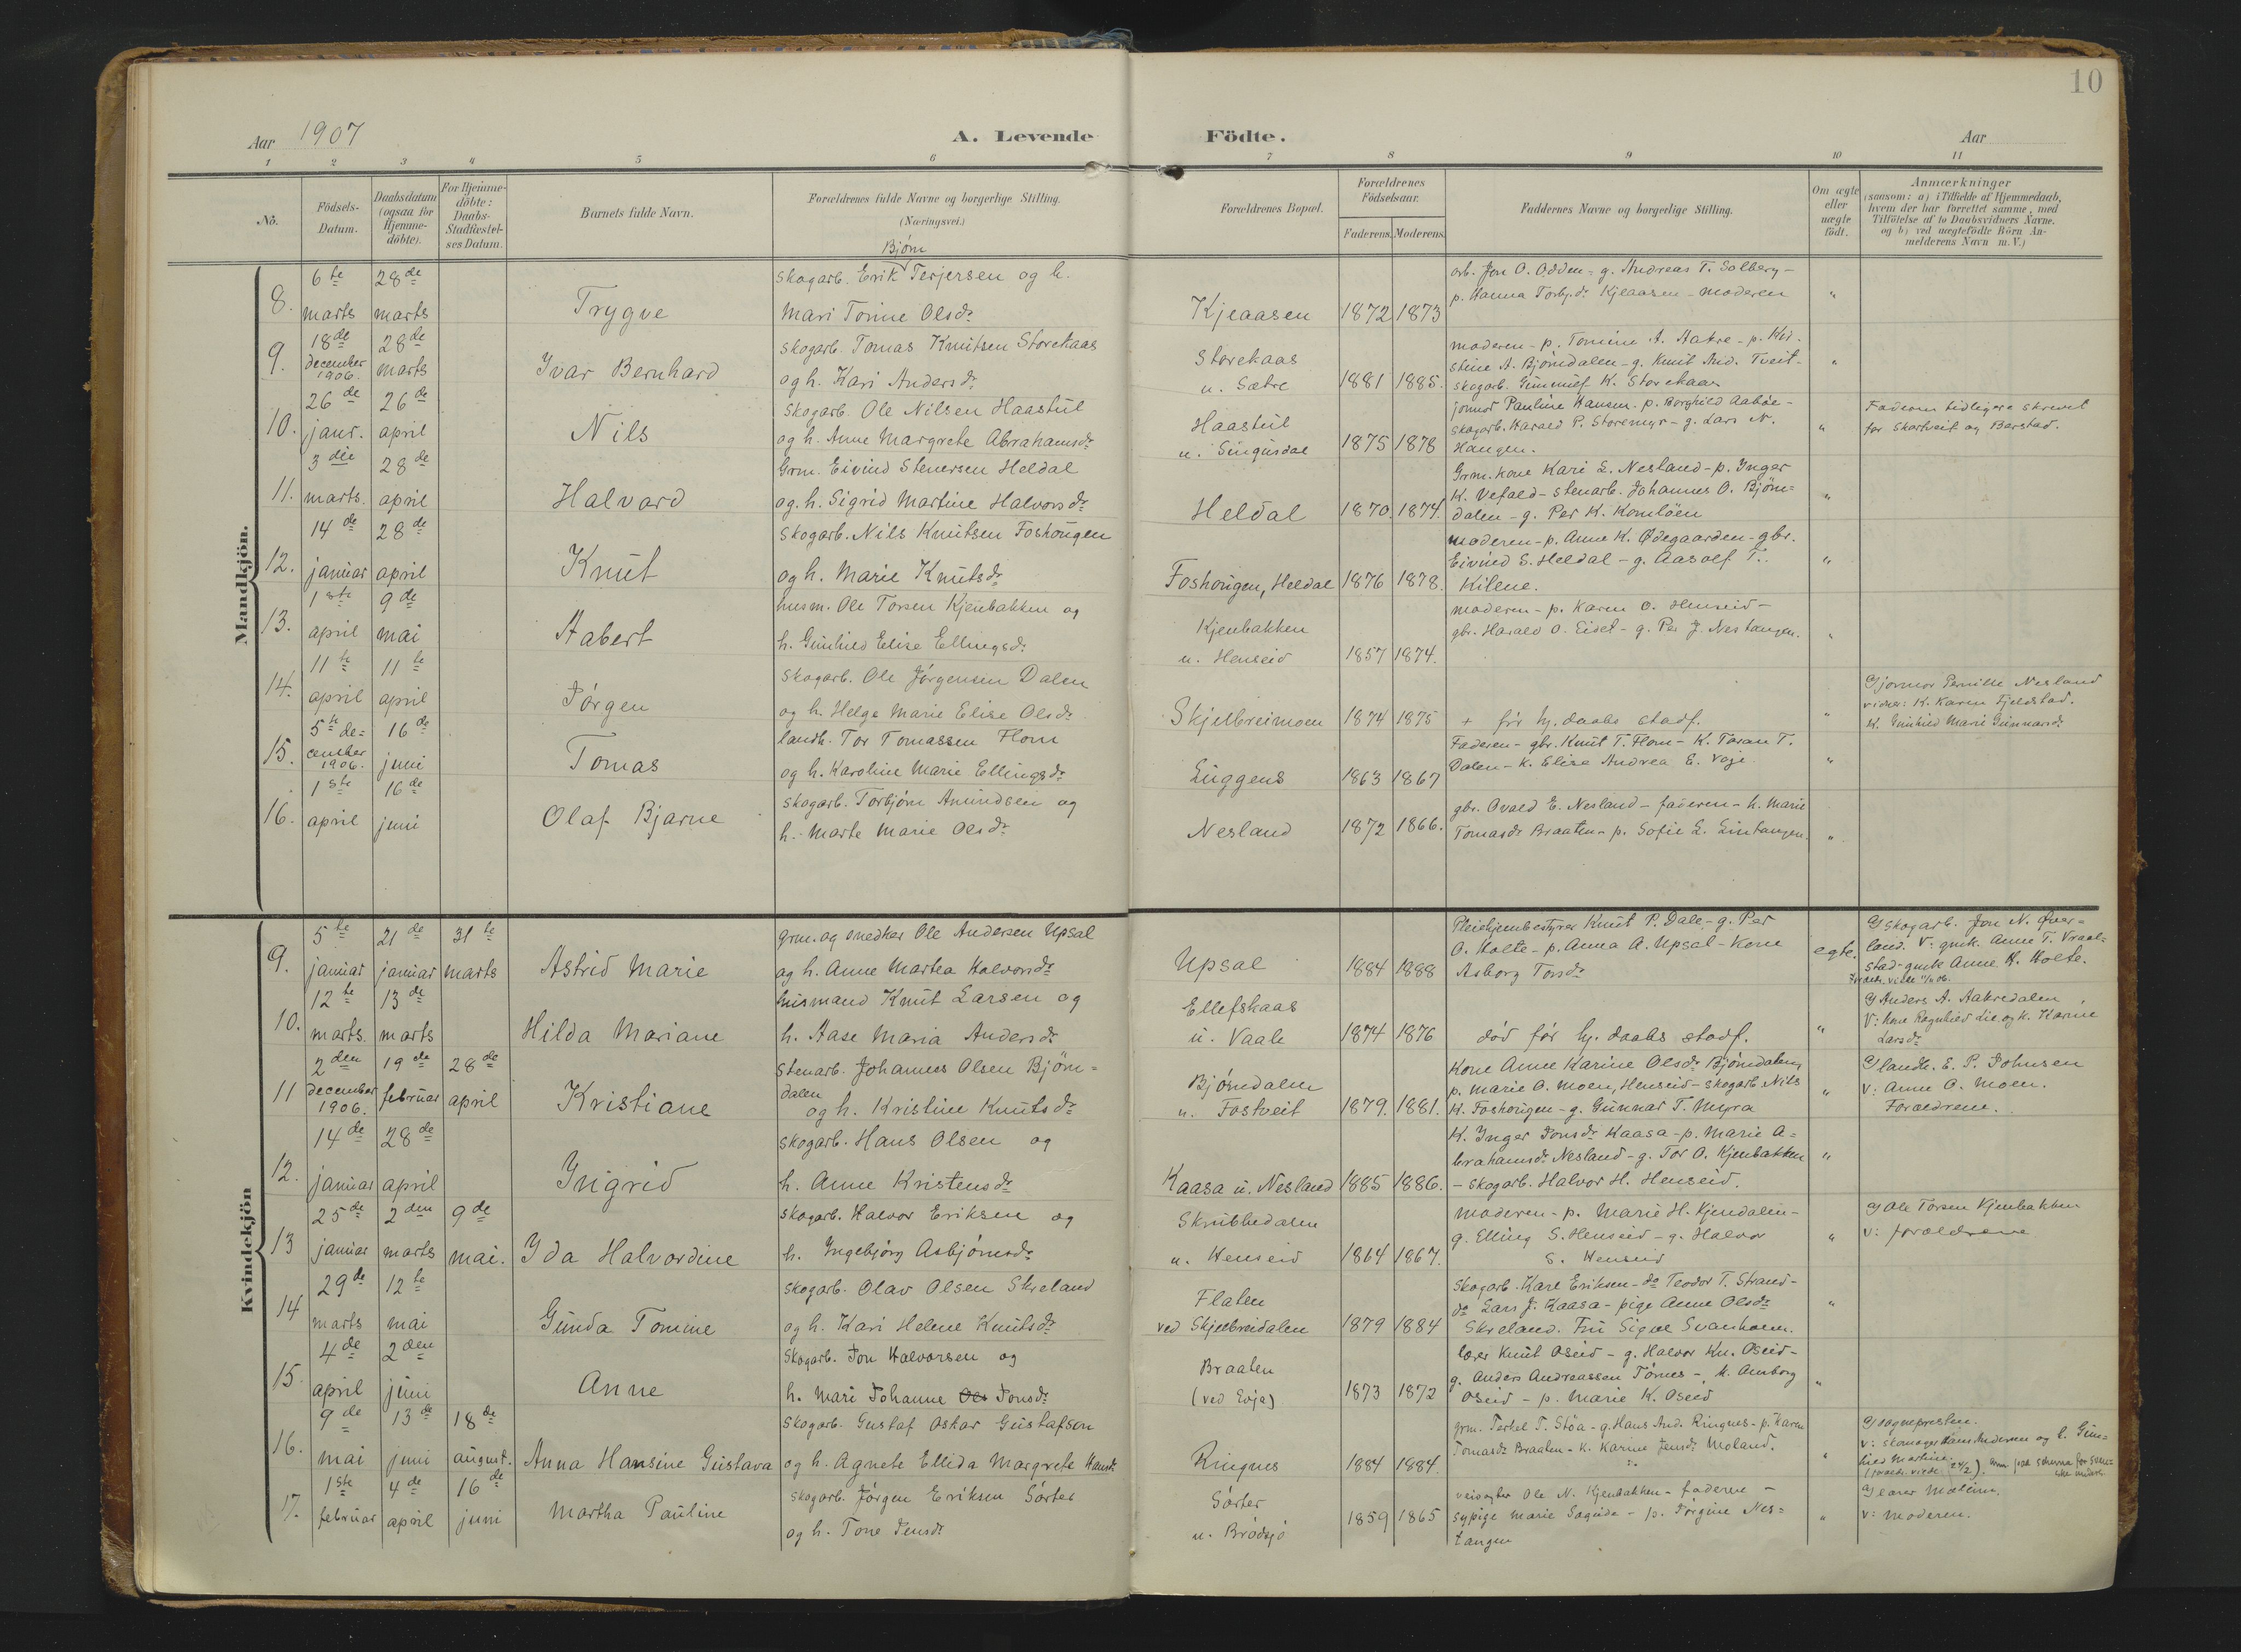 10
Aar 1907
A. Levende Födte.
Aar
1 2 3 4 5 6 7 8 9 10 11
No.
Födsels-Datum.
Daabsdatum (ogsaa for Hjemme-döbte).
For Hjemme-döbte: Daabs-Stadfæstel-ses Datum.
Barnets fulde Navn.
Forældrenes fulde Navne og borgerlige Stilling.
(Næringsvei.)
Forældrenes Bopæl.
Forældrenes Födselsaar.
Faderens. Moderens.
Faddernes Navne og borgerlige Stilling.
Om ægte eller uægte födt.
Anmærkninger
(saasom: a) i Tilfælde af Hjemmedaab,
hvem der har forrettet samme, med
Tilföielse af to Daabsvidners Navne.
og b) ved uægtefödte Börn An-
melderens Navn m. V.)
Mandkjön.
8. 6te marts 28de marts Trygve
Bjørn
skogarb. Erik Terjersen og h.
Mari Tomine Olsdr
Kjeaasen 1872 1873
arb. Jon O. Odden - g. Andreas T. Solberg -
p. Hanna Torbj.dr Kjeaasen - moderen "
9. 18de december 1906. 28de marts Ivar Bernhard
skogarb. Tomas Knutsen Storekaas
og h. Kari Andersdr
Storekaas
u. Sætre 1881 1885.
moderen - p. Tomine A. Aakre - p. Kir-
stine A. Bjørndalen - g. Knut And. Tveit -
skogarb. Gunnulf K. Storekaas "
10. 26de janr. 26de april Nils
skogarb. Ole Nilsen Haastul
og h. Anne Margrete Abrahamsdr
Haastul
u. Singusdal 1875 1878
jormor Pauline Hansen. p. Borghild Aabøe -
skogarb. Harald P. Storemyr - g. Lars N.
Haugen. "
Faderen tidligere skrevet
for Skortveit og Berstad.
11. 3die marts. 28de april Halvard
Grm. Eivind Stenersen Heldal
og h. Sigrid Martine Halvorsdr
Heldal 1870. 1874.
Grm. kone Kari L. Nesland - p. Inger
K. Vefald - stenarb. Johannes O. Bjørn=
dalen - g. Per K. Komløen "
12. 14de januar 28de april Knut
skogarb. Nils Knutsen Foshougen
og h. Marie Knutsdr
Foshougen, Heldal 1876 1878.
moderen - p. Anne K. Ødegaarden - gbr.
Eivind S. Heldal - g. Aasolf T.
Kilene. "
13. 1ste april 9de mai Aabert
husm. Ole Torsen Kjenbakken og
h. Gunhild Elise Ellingsdr
Kjenbakken
u. Henseid 1857 1874.
moderen - p. Karen O. Henseid -
gbr. Harald O. Eidet - g. Per J. Nestangen. "
14. 11te april 11te april Jørgen
skogarb. Ole Jørgensen Dalen
og h. Helge Marie Elise Olsdr
Skjelbreimoen 1874 1875
+ før hj. daabs stadf. "
Gjormor Pernille Nesland
vidner: K. Karen Fjeldstad.
K. Gunhild Marie Gunnarsdr
15. 5te de=cember 1906. 16de juni Tomas
landh. Tor Tomassen Flom
og h. Karoline Marie Ellingsdr
Luggens 1863 1867
Faderen - gbr. Knut T. Flom - K. Taran T.
Dalen - K. Elise Andrea E. Voje "
16. 1ste april 16de juni Olaf Bjarne
skogarb. Torbjørn Amundsen og
h. Marte Marie Olsdr
Nesland 1872 1866.
gbr. Ovald E. Nesland - faderen - h. Marie
Tomasdr Braaten - p. Sofie L. Lintangen. "
Kvindekjön
9. 5te januar 21de januar 31te marts Astrid Marie
grm. og snedker Ole Andersen Upsal
og h. Anne Martea Halvorsdr
Upsal 1884 1888
Pleiehjembestyrer Knut P. Dale - g. Per
O. Holte - p. Anna A. Upsal - kone
Asborg Torsdr egte.
Gj skogarb. Jon N. Øver=
land. V: gmk. Anne T. Vraal=
stad - gmk Anne K. Holte.
10. 12te marts. 13de marts Hilda Mariane
husmand Knut Larsen og
h. Aase Maria Andersdr
Ellefskaas
u. Vaale 1874 1876
død før hj. daabs stadf. "
Gj Anders A. Aakredalen,
V: kone Ragnhild Lie og k. Karine
Larsdr
11 2den december 1906. 19de februar 28de april Kristiane
stenarb. Johannes Olsen Bjørn=
dalen
og h. Kristine Knutsdr
Bjørndalen
u. Fostveit 1879. 1881.
Kone Anne Karine Olsdr Bjørndalen,
p. Marie O. Moen, Henseid - skogarb. Nils
K. Foshougen - g. Gunnar T. Myra "
Gj landh. E. P. Johnsen
V: Anne O. Moen.
Forældrene.
12. 14de januar 28de april Ingrid
skogarb. Hans Olsen og
h. Anne Kristensdr
Kaasa u. Nesland 1885 1886.
K. Inger Jonsdr Kaasa - p. Marie A=
brahamsdr Nesland - g. Tor O. Kjenbakken
- skogarb. Halvor H. Henseid. "
13 25de januar 2den marts 9de mai. Ida Halvordine
skogarb. Halvor Eriksen og
h. Ingebjørg Asbjørnsdr
Skrubbedalen
u. Henseid 1864 1867.
moderen - p. Marie H. Kjendalen -
g. Elling S. Henseid - g. Halvor
S. Henseid "
Gj Ole Torsen Kjenbakken
V: forældrene
14 29de marts 12te mai Gunda Tomine
skogarb. Olav Olsen Skreland
og h. Kari Helene Knutsdr
Flaten
ved Skjelbreidalen 1879 1884
skogarb. Karl Eriksen - do Teodor T. Strand -
do Lars J. Kaasa - pige Anne Olsdr
Skreland. Fru Signe Svanholm. "
15. 4de april 2den juni Anne
skogarb. Jon Halvorsen og
h. Mari Johanne Ols Jonsdr
Braaten
(ved Evje) 1873 1872
lærer Knut Oseid - g. Halvor Kn. Oseid -
g. Anders Andreassen Tørnes - k. Amborg
Oseid - p. Marie K. Oseid "
16. 9de mai 13de juni 18de august. Anna Hansine Gustava
skogarb. Gustaf Oskar Gustafson
og h. Agnete Ellida Margrete Hansdr
Ringnes 1884 1884.
grm. Terkel T. Støa - g. Hans And. Ringnes - p. Karen
Tomasdr Braaten - k. Karine Jensdr Moland. "
Gj sognepresten.
V: skomager Hans Andersen og k. Gun=
hild Martine.
17. 1ste februar 4de april 16de juni Martha Pauline
skogarb. Jørgen Eriksen Sørter
og h. Tone Jensdr
Sørter
u. Brødsjø 1859 1865
veivogter Ole N. Kjenbakken - faderen -
sypige Marie Sagnde - p. Jørgine Nes=
tangen "
Gj lærer Mælum.
V: moderen.